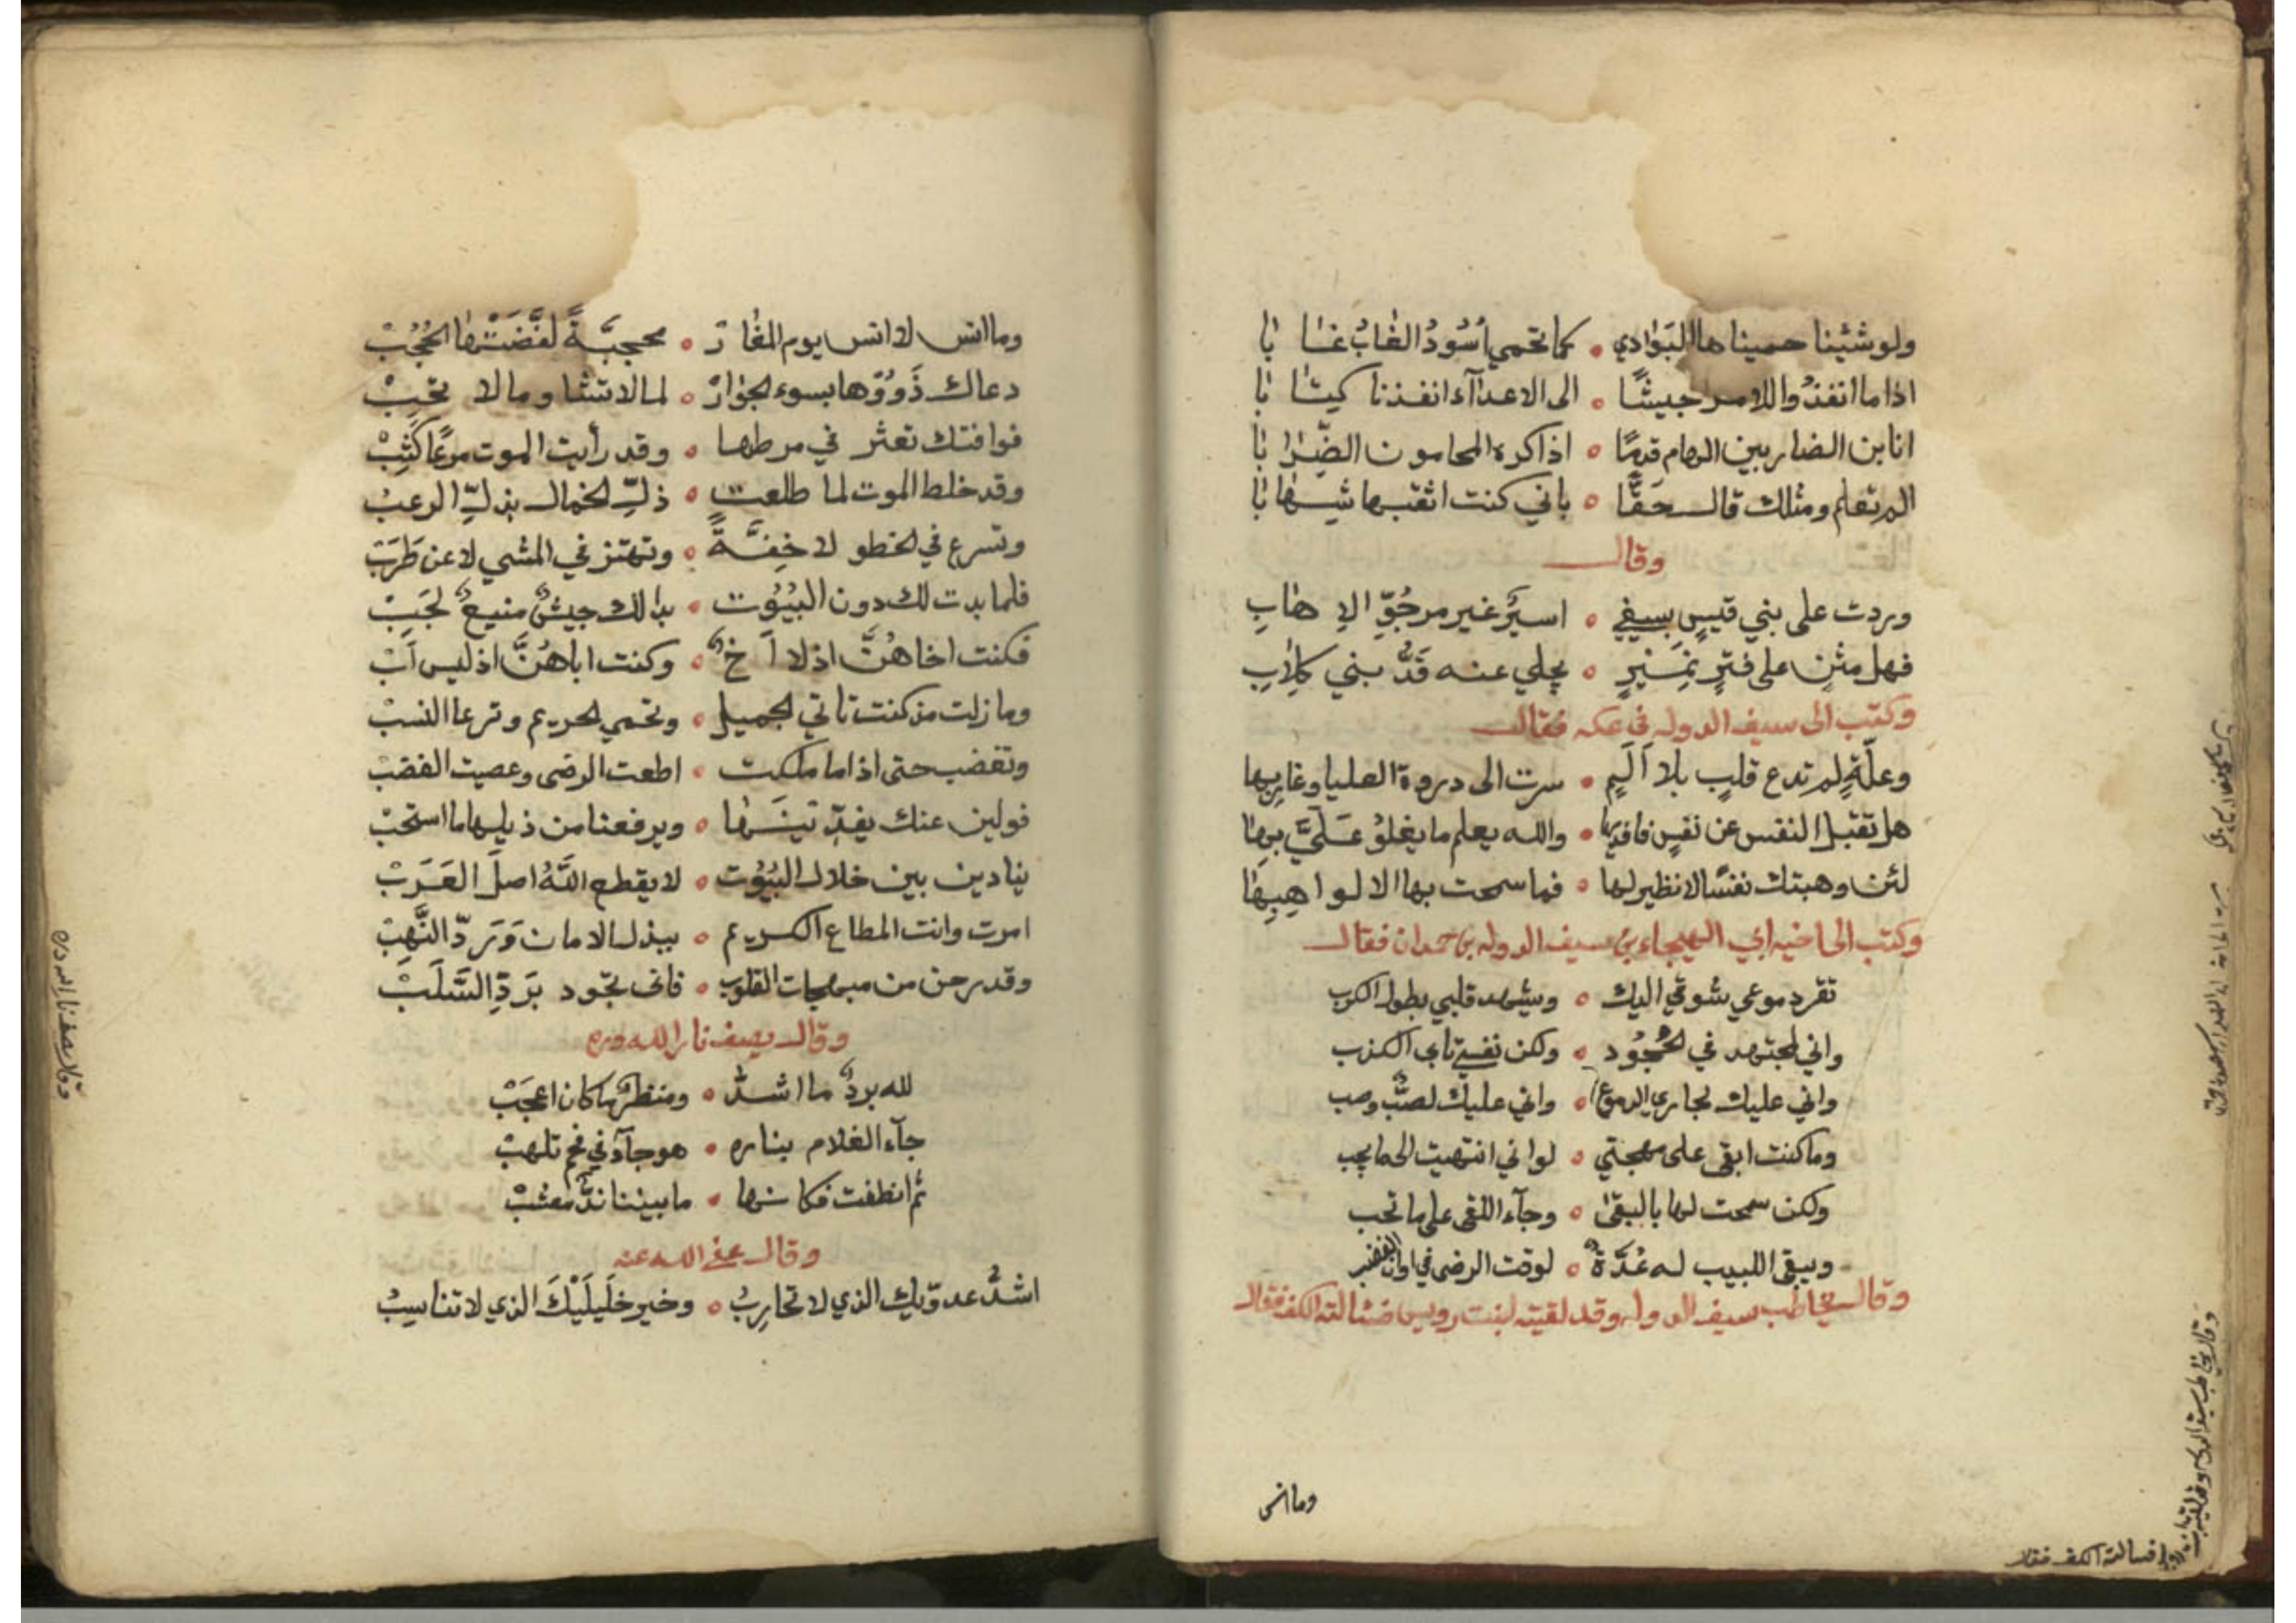 ولو شئينا حميناها البوادي ٥ كما تحمي أسود الغاب غابا
اذا ما انفذ واللامر جيشًا ٥ الى الاعدآء انفذنا كيتابا
انا ابن الضاربين الهام قدمًا ٥ اذا كره المحامون الضرابا
الم تعلم ومثلك قال حقًّا ٥ باني كنت اثقبها شهابا
وقال
وردت على بني قيسٍ بسيفي ٥ اسيرٌ غير مرجوّ الاهابِ
فهل مثنٍ على فترٍ نميرٍ ٥ يحلي عنه قدّ بني كلابِ
وكتب الى سيف الدوله في عكه فقال
وعلّةٍ لم تدع قلبٍ بلا اَلَمٍ ٥ سرت الى دروة العليا وغاربها
هل تقبل النفس عن نفسٍ فافديها ٥ والله يعلم ما يغلوُ عَلَيَّ بها
لئن وهبتك نفسًا لا نظير لها ٥ فما سمحت بها الا لواهبها
وكتب الى اخيه ابي الهيجاء بن سيف الدوله بن حمدان فقال
تقر دموعي شوقي اليك ٥ ويشهد قلبي بطول الكرب
واني لمجتهد في الجُحُود ٥ ولكن نفسي تابى الكذب
واني عليك لجاري الدموع ٥ واني عليك لصبٌّ وصب
وما كنت ابقى على مهجتي ٥ لو اني انتهيت الى ما يجب
ولكن سمحت لها بالبقى ٥ وجآء اللقى على ما تحب
ويبقى اللبيب له عُدَّةٌ ٥ لوقت الرضى في اوان الغضب
وقال يخاطب سيف الدوله وقد لقيته لبنت فسالته الكف فقال
وما انس
وما انس لا انس يوم المغار ٥ محجبّةً لفَّضَتْها الحُجُبْ
دعاك ذَوُوها بسوء الجوار ٥ لما لا تشا وما لا تحبْ
فوافتك تعثر في مرطها ٥ وقد رأيت الموت مرعًا كثبْ
وقد خلط الموت لما طلعت ٥ ذلّ الخمال بذلّ الرعبْ
وتسرع في الخطو لا خفَّةً ٥ وتهتز في المشي لا عن طَرَبْ
فلما بدت لك دون البُيُوت ٥ بدا لك جيشٌ منيعٌ لجبْ
فكنت اخاهُنَّ اذ لا اَخٌ ٥ وكنت اباهُنَّ اذ ليس اَبْ
وما زلت مذ كنت تاتي الجميل ٥ وتحمي الحريم وترعا النسبْ
وتغضب حتى اذا ما ملكت ٥ اطعت الرضى وعصيت الغضبْ
فولين عنك يفدّينها ٥ ويرفعنا من ذيلها ما استحبْ
ينادين بين خلال البُيُوت ٥ لا يقطع اللهُ اصل العَرَبْ
امرت وانت المطاع الكريم ٥ ببذل الامان وَرَدّ النَّهبْ
وقد رحن من مهجات القلوب ٥ فانى تجود بَرَدِّ السَّلَبْ
وقال يصف نارا لله دره
لله بردٌ ما اشدّ ٥ ومنظرٌ ما كان اعجَبْ
جآء الغلام بناره ٥ هوجآء في فحم تلهبْ
ثم انطفت فكانها ٥ ما بيننا ندٌّ معشبْ
وقال عفي الله عنه
اشدُّ عدوّيك الذي لا تحاربُ ٥ وخير خليلَيْكَ الذي لا تناسبُ
وقال يخاطب سيف الدوله وقد لقيته
فسالته الكف فقال
وقال يصف نارا لله دره